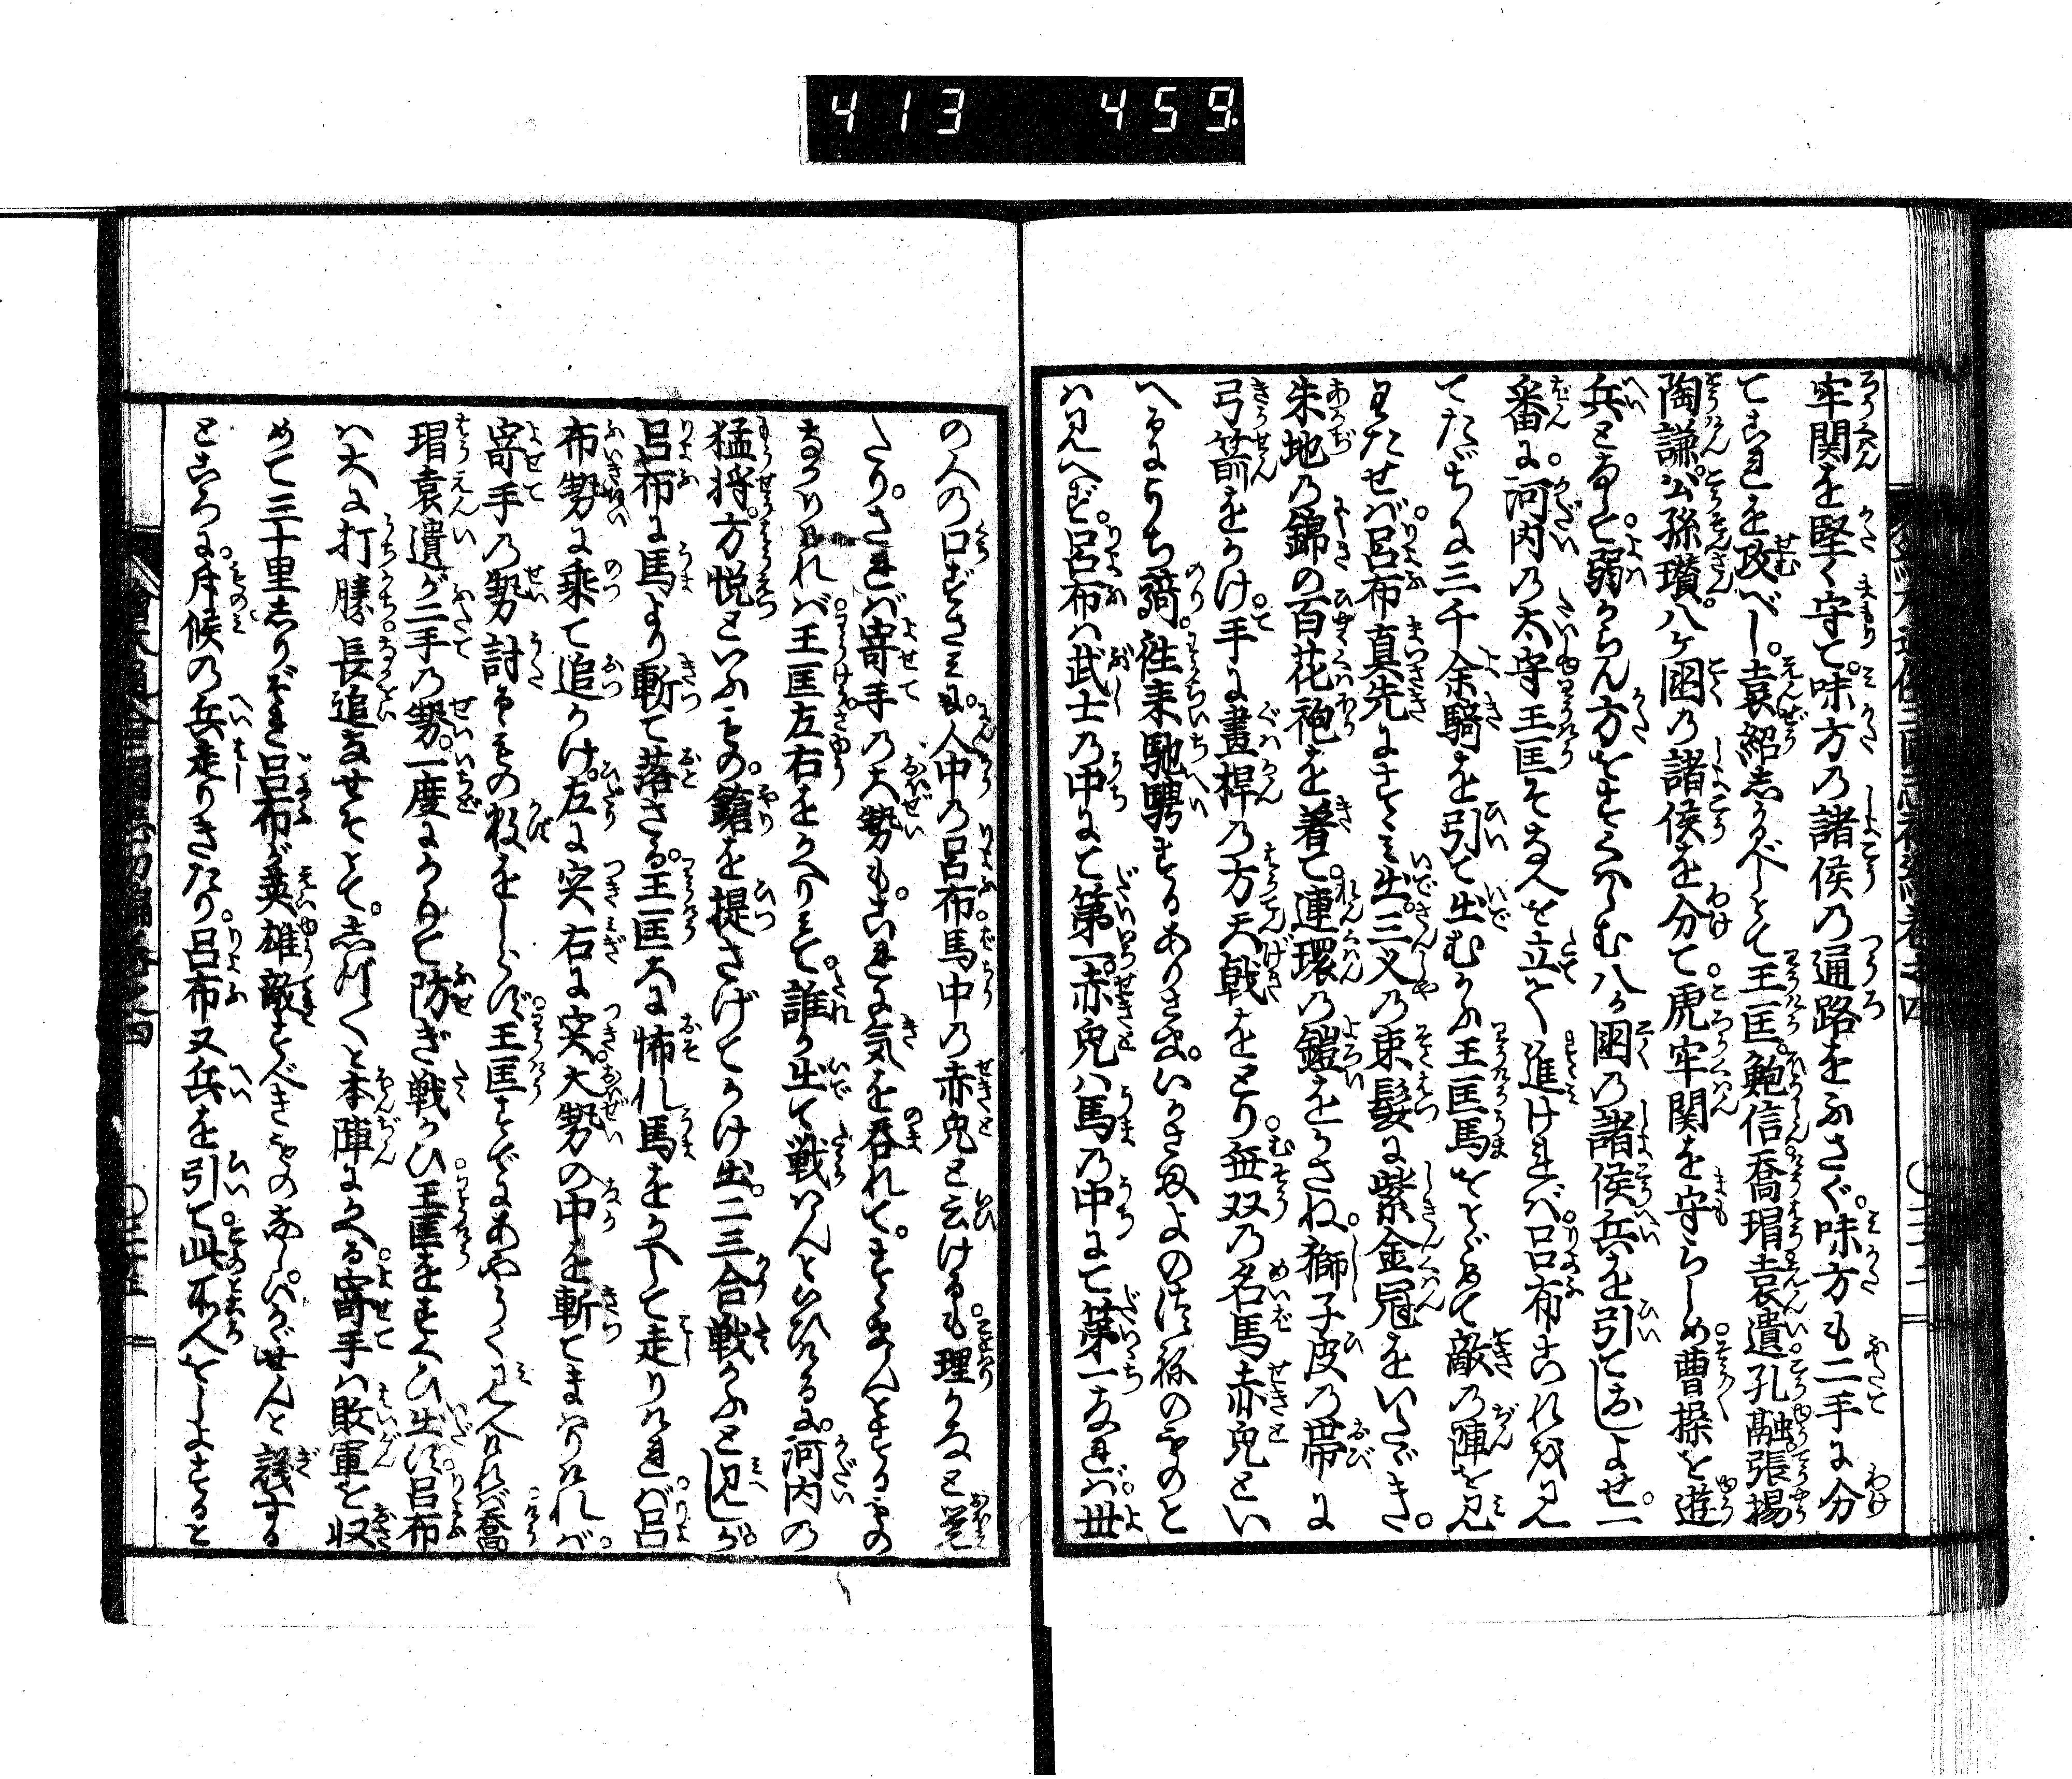 413 459
牢関を堅く守て。味方の諸侯の通路をふさぐ。味方も二手に分
てこれを攻べし。袁紹しかるべしとて王匡。鮑信喬瑁袁遺。孔融張楊
陶謙。公孫瓚。八ヶ国の諸侯を分て。虎牢関を守らしめ曹操を遊
兵となして。弱からん方をすくはむ八ヶ国の諸侯兵を引ておしよせ。一
番に。河内の太守王匡そなへを立て進ければ呂布これを見
てたゞちに三千余騎を引て出むかふ王匡馬をとゞめて敵の陣を見
わたせば。呂布真先にすゝみ出。三叉の束髪に紫金冠をいたゞき。
朱地の錦の百花袍を着て。連環の鎧をかさね。獅子皮の帯に
弓箭をかけ。手に畫桿の方天戟をとり。無双の名馬赤兎とい
へるにうち騎。往来馳騁するありさま。いかさまよのつねのものと
は見へず。呂布は武士の中にて第一。赤兎は馬の中にて第一なれば。世
の人の口ずさみに。人中の呂布。馬中の赤兎と云けるも。理かなと覚
たり。されば寄手の大勢も。これに気を呑れて。すゝまんとするもの
なかりければ。王匡左右をかへりみて。誰か出て戦はんといひけるに。河内の
猛将。方悦といふもの。鎗を提さげてかけ出。二三合戦かふと見へしが。
呂布に馬より斬て落さる。王匡大に怖れ馬をかへして走りければ。呂
布勢に乗て追かけ。左に突右に突。大勢の中を斬てまはりければ。
寄手の勢討るゝもの数をしらず。王匡すでにあやうく見へければ。喬
瑁袁遺が二手の勢。一度にかゝりて防ぎ戦かひ。王匡をすくひ出す。呂布
は大に打勝。長追なせそとて。しづ〳〵と本陣にかへる。寄手は敗軍を収
めて三十里しりぞき呂布が英雄敵すべきものなし。いかゞせんと議する
ところに。斥候の兵走りきたり。呂布又兵を引て。此所へをしよすると